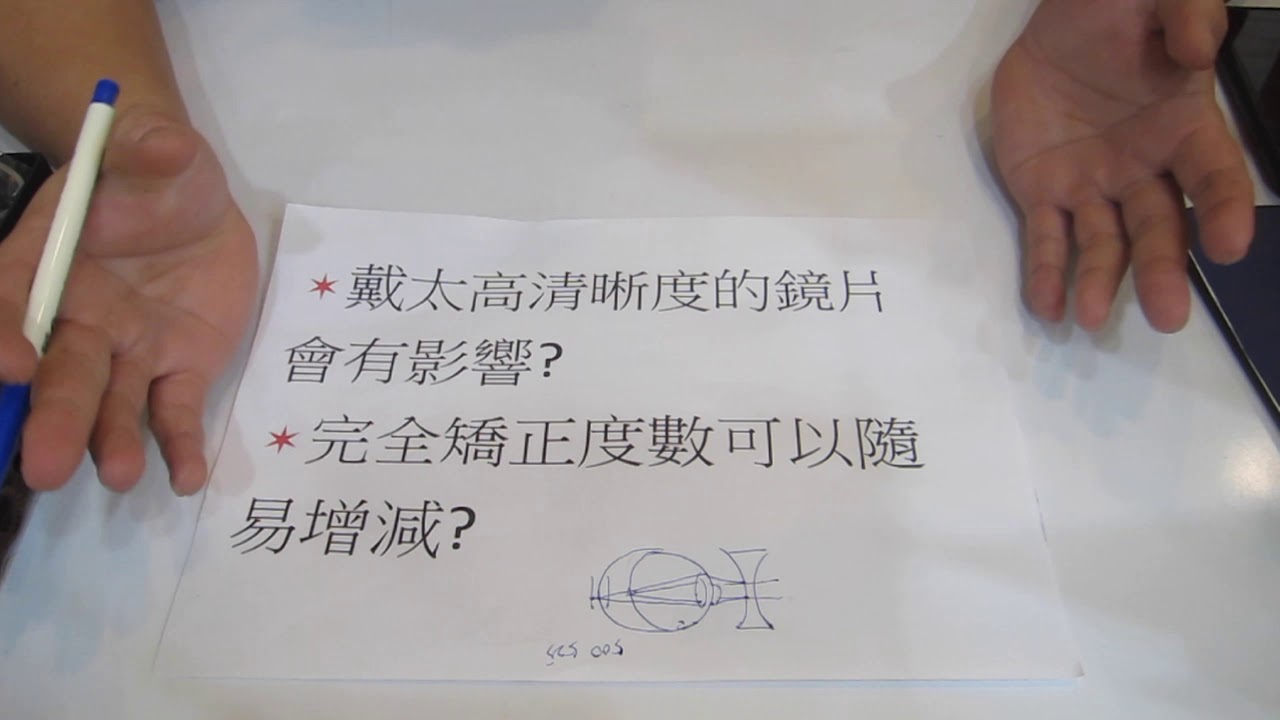 ✶戴太高清晰度的鏡片
會有影響?
✶完全矯正度數可以隨
易增減?